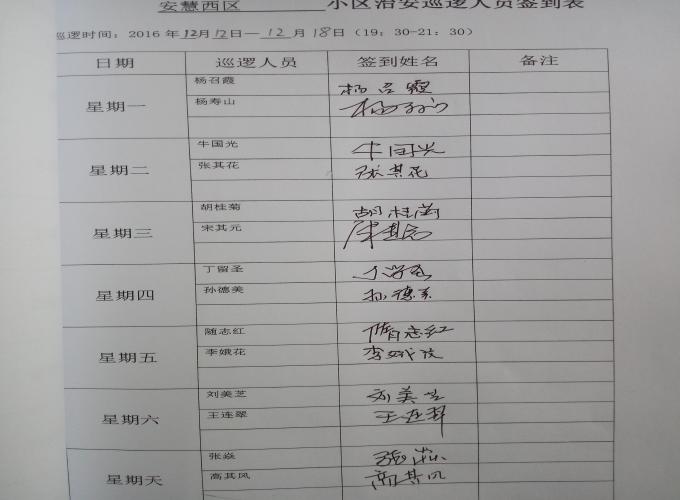 安慧西区 小区治安巡逻人员签到表
巡逻时间：2016 年 12月12日—12月18日（19：30-21：30）
日期 巡逻人员 签到姓名 备注
星期一
杨召霞 杨召霞
杨寿山 杨寿山
星期二
牛国光 牛国光
张其花 张其花
星期三
胡桂菊 胡桂菊
宋其元
星期四
丁留圣
孙德美 孙德美
星期五
随志红 隋志红
李娥花 李娥花
星期六
刘美芝 刘美芝
王连翠 王连翠
星期天
张焱 张焱
高其风 高其风